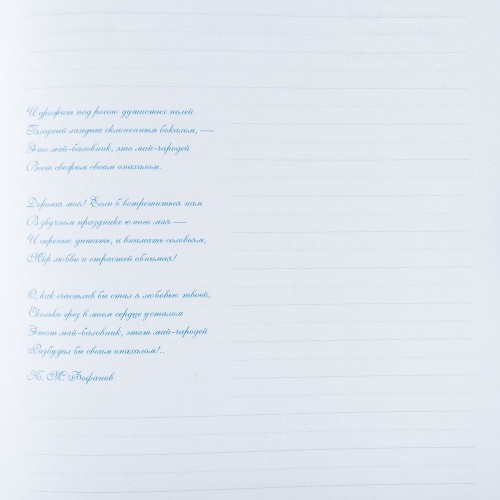 И дрожит под росою душистых полей
Бледный ландыш склоненным бокалом, —
Это май-баловник, это май-чародей
Веет свежим своим опахалом.
Дорогая моя! Если б встретиться нам
В звучном празднике юного мая —
И сиренью дышать, и внимать соловьям,
Мир любви и страстей обнимая!
О, как счастлив бы стал я любовью твоей,
Сколько грез в моем сердце усталом
Этот май-баловник, этот май-чародей
Разбудил бы своим опахалом!..
К. М. Фофанов